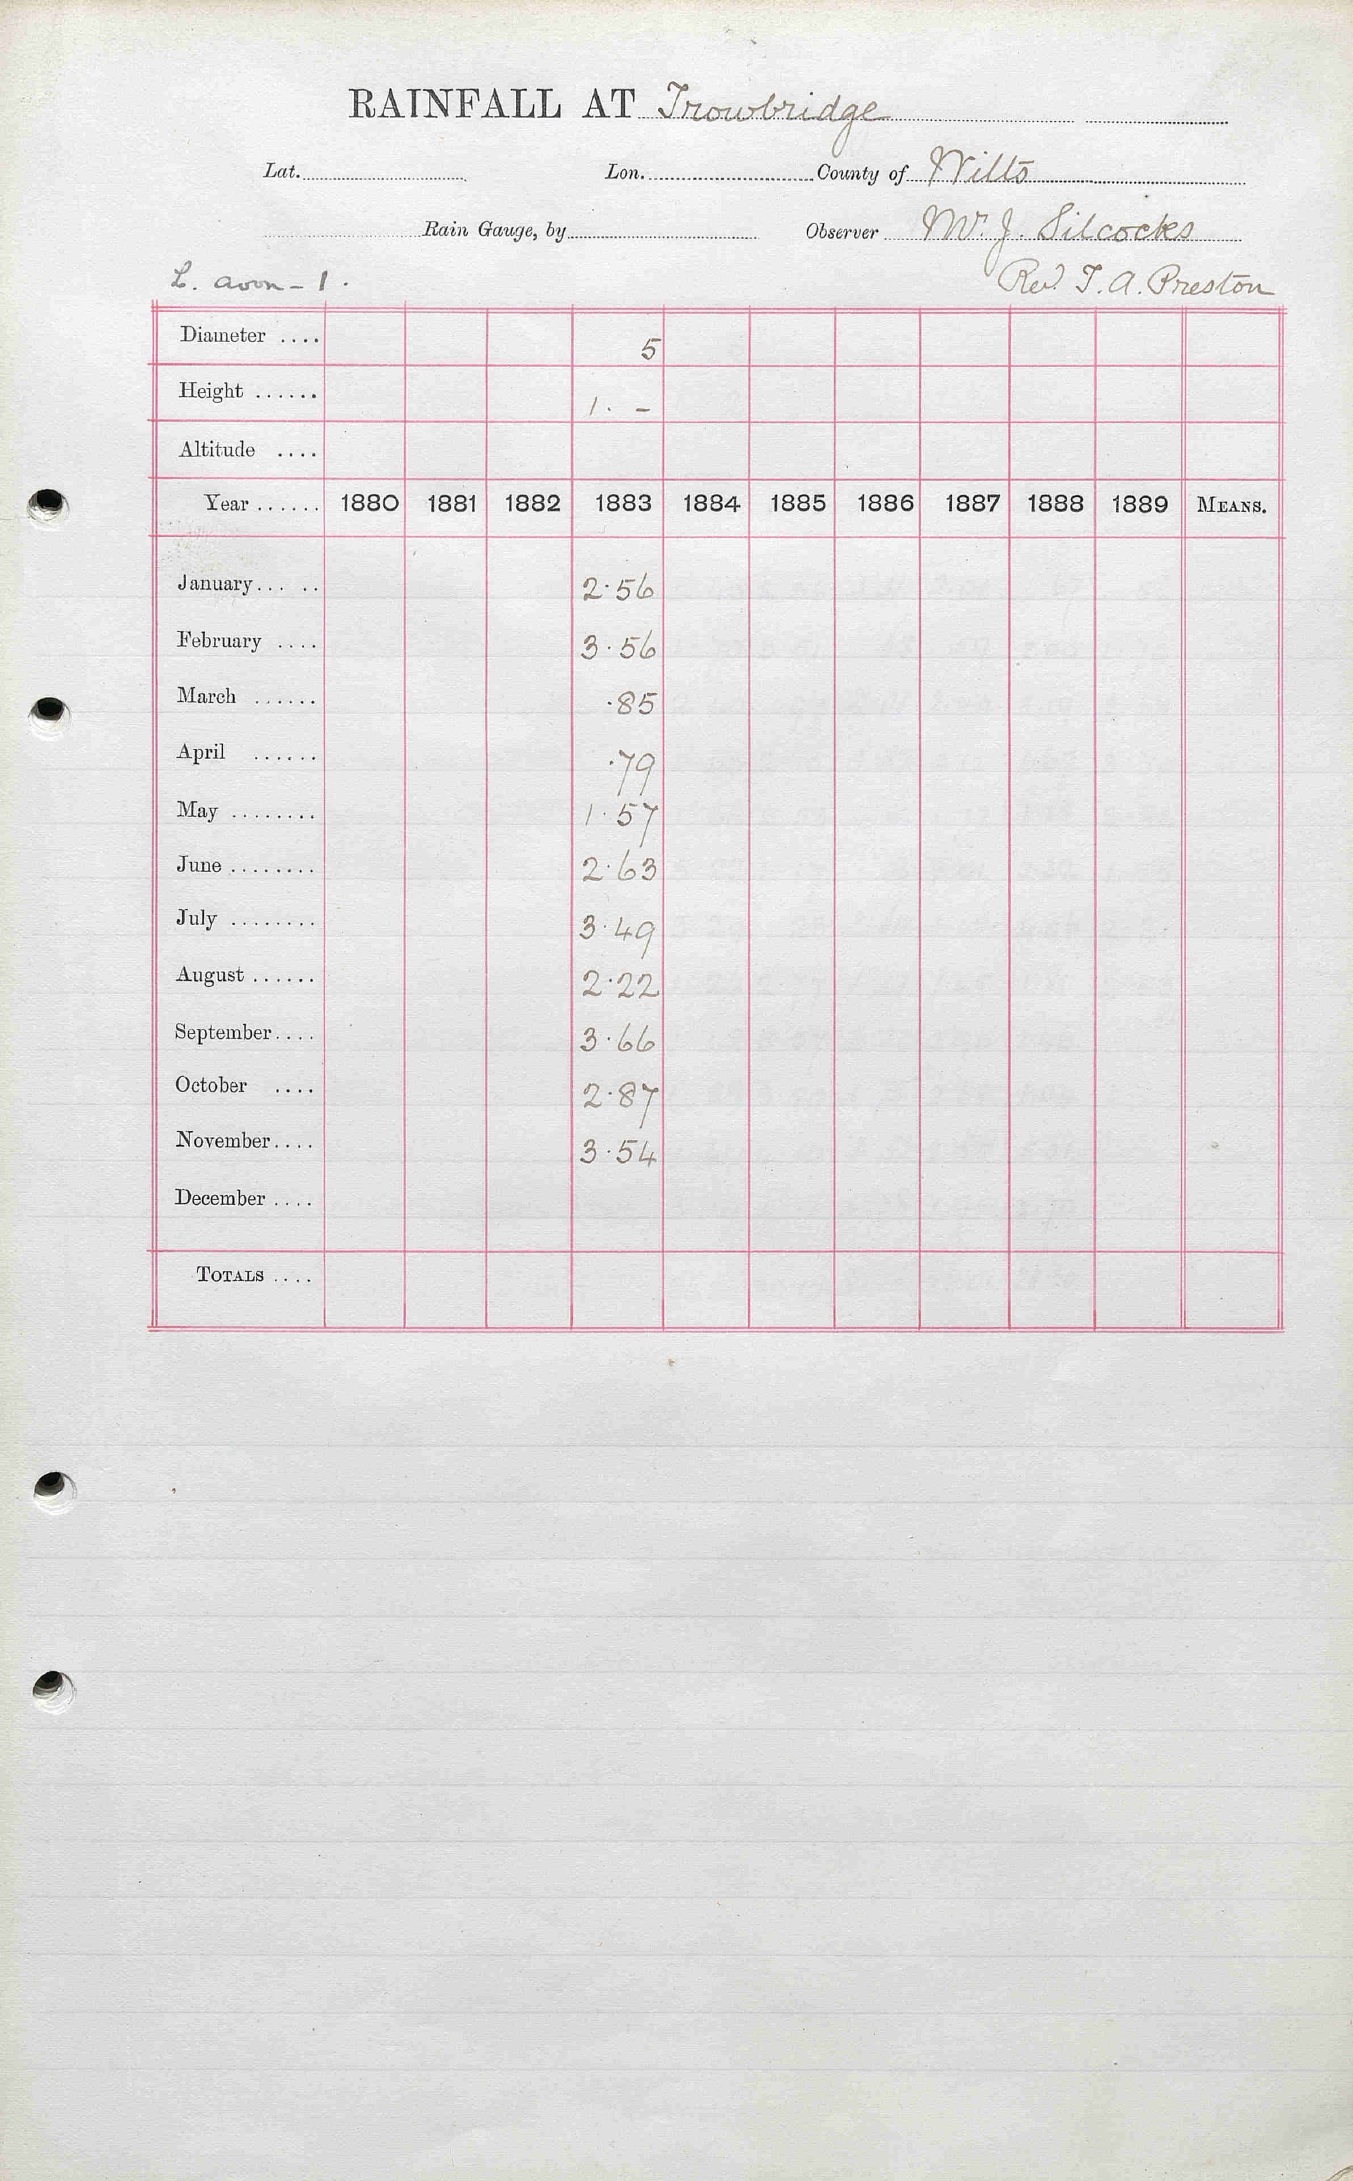 RAINFALL AT Trowbridge
Lat. Lon. County of Wilts
Rain Gauge, by Observer Mr. J. Silcocks
L. avon - 1. Rev. T. A. Preston
Diameter .... 5
Height ...... 1. -
Altitude ....
Year ...... 1880 1881 1882 1883 1884 1885 1886 1887 1888 1889 MEANS.
January... .. 2.56
February .... 3.56
March ...... .85
April ...... .79
May ........ 1.57
June ........ 2.63
July ........ 3.49
August ...... 2.22
September.... 3.66
October .... 2.87
November.... 3.54
December ....
TOTALS ....